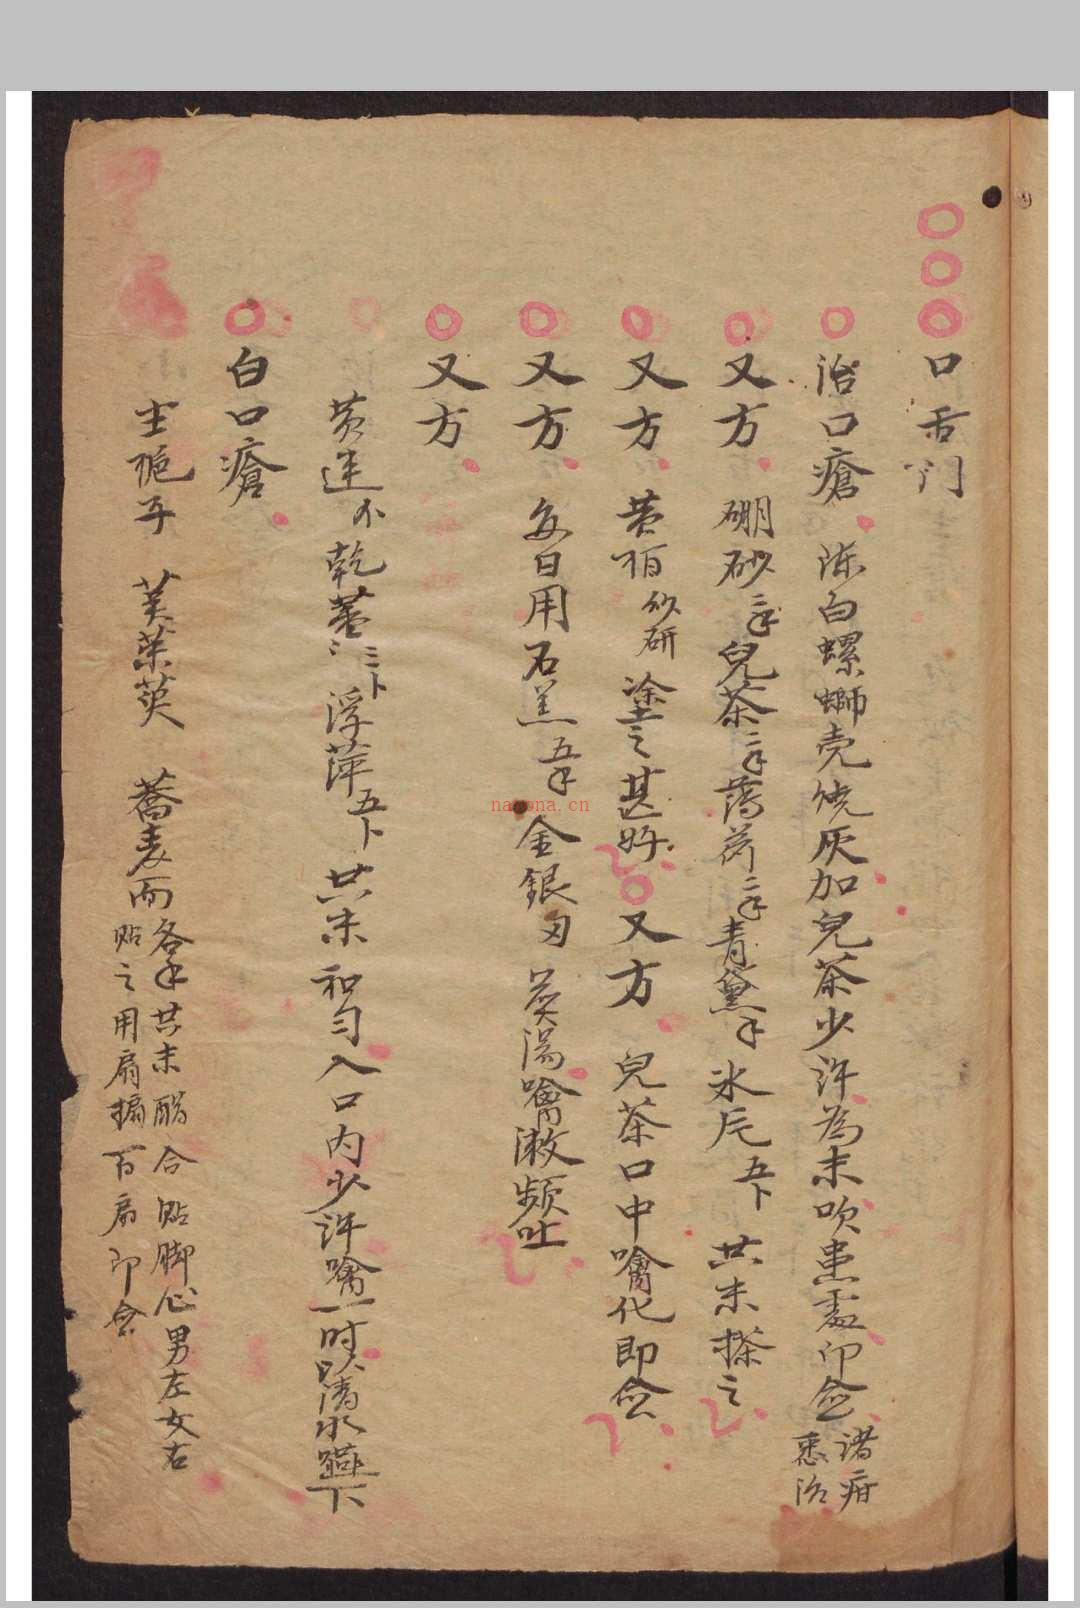 口舌门
治口瘡 陈白螺螄壳烧灰加兒茶少許為末吹患處即愈 諸疳悉治
又方 硼砂二𠂆兒茶二𠂆薄荷二𠂆青黛𠂆冰片五卜共末搽之
又方 黄栢炒研塗之甚好 又方 兒茶口中噙化即愈
又方 每日用石羔五𠂆金銀匁 煎湯噙漱頻吐
又方
黄連不乾薑三卜浮萍五卜共末和匀入口内少許噙一時以清水嚥下
白口瘡
士栀子 吴茱萸 蕎麦面各𠂆共末醋合貼脚心男左女右
貼之用扇搧百扇即愈
nayona.cn